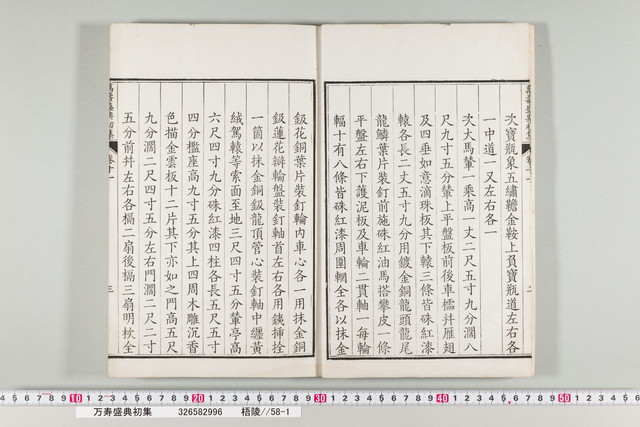 次寶瓶象五繡韂金鞍上負寶瓶道左右各
一中道一又左右各一
次大馬輦一乘高一丈二尺五寸九分濶八
尺九寸五分輦上平盤板前後車櫺并雁翅
及四垂如意滴珠板其下轅三條皆硃紅漆
轅各長二丈五寸九分用鍍金銅龍頭龍尾
龍鱗葉片裝釘前施硃紅油馬搭攀皮一條
平盤左右下護泥板及車輪二貫軸一每輪
輻十有八條皆硃紅漆周圍輞全各以抹金
鈒花銅葉片裝釘輪內車心各一用抹金銅
鈒蓮花瓣輪盤裝釘軸首左右各用鐵揷拴
一箇以抹金銅鈒龍頂管心裝釘軸中纒黃
絨駕轅等索面至地三尺四寸五分輦亭高
六尺四寸九分硃紅漆四柱各長五尺五寸
四分檻座高九寸五分其上四周木雕沉香
色描金雲板十二片其下亦如之門高五尺
九分濶二尺四寸五分左右門濶二尺二寸
五分前并左右各槅二扇後槅三扇明栨全
萬壽盛典初集
卷十一
三
二
10
20
30
40
50
万寿盛典初集 326582996 梧陵//58-1